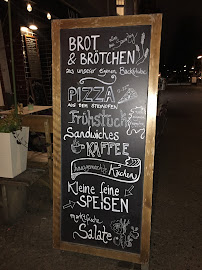 BROT
& BRÖTCHEN
aus unserer eigenen Backstube
PIZZA
AUS DEM STEINOFEN
Frühstück
Sandwiches
KAFFEE
hausgemachte
Kuchen
Kleine feine
SPEISEN
marktfrische
Salate